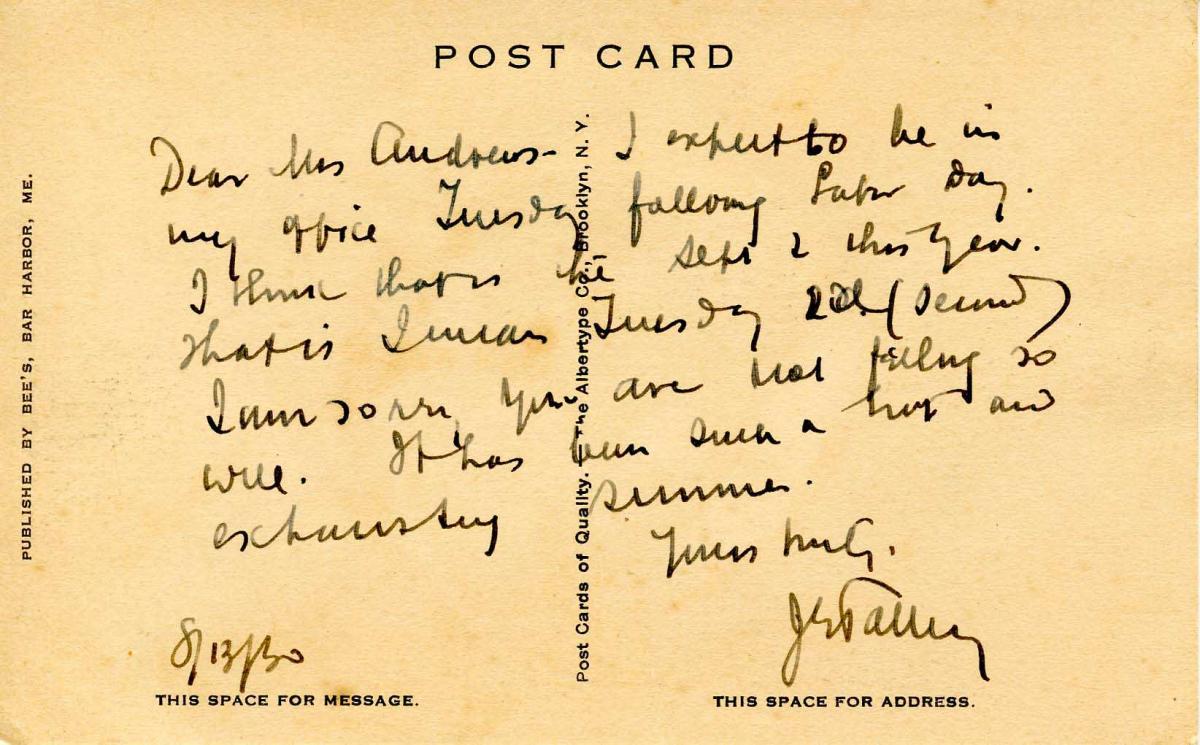 POST CARD
Dear Mrs Andrews- I expect to be in
my office Tuesday following Labor Day.
I think that is the Sept 2 this year.
that is I mean Tuesday 2d. (second)
I am sorry you are not feeling so
well. It has been such a hot and
exhausting summer.
Yours truly.
8/13/30
THIS SPACE FOR MESSAGE.
THIS SPACE FOR ADDRESS.
PUBLISHED BY BEE'S, BAR HARBOR, ME.
Post Cards of Quality. — The Albertype Co., Brooklyn, N. Y.